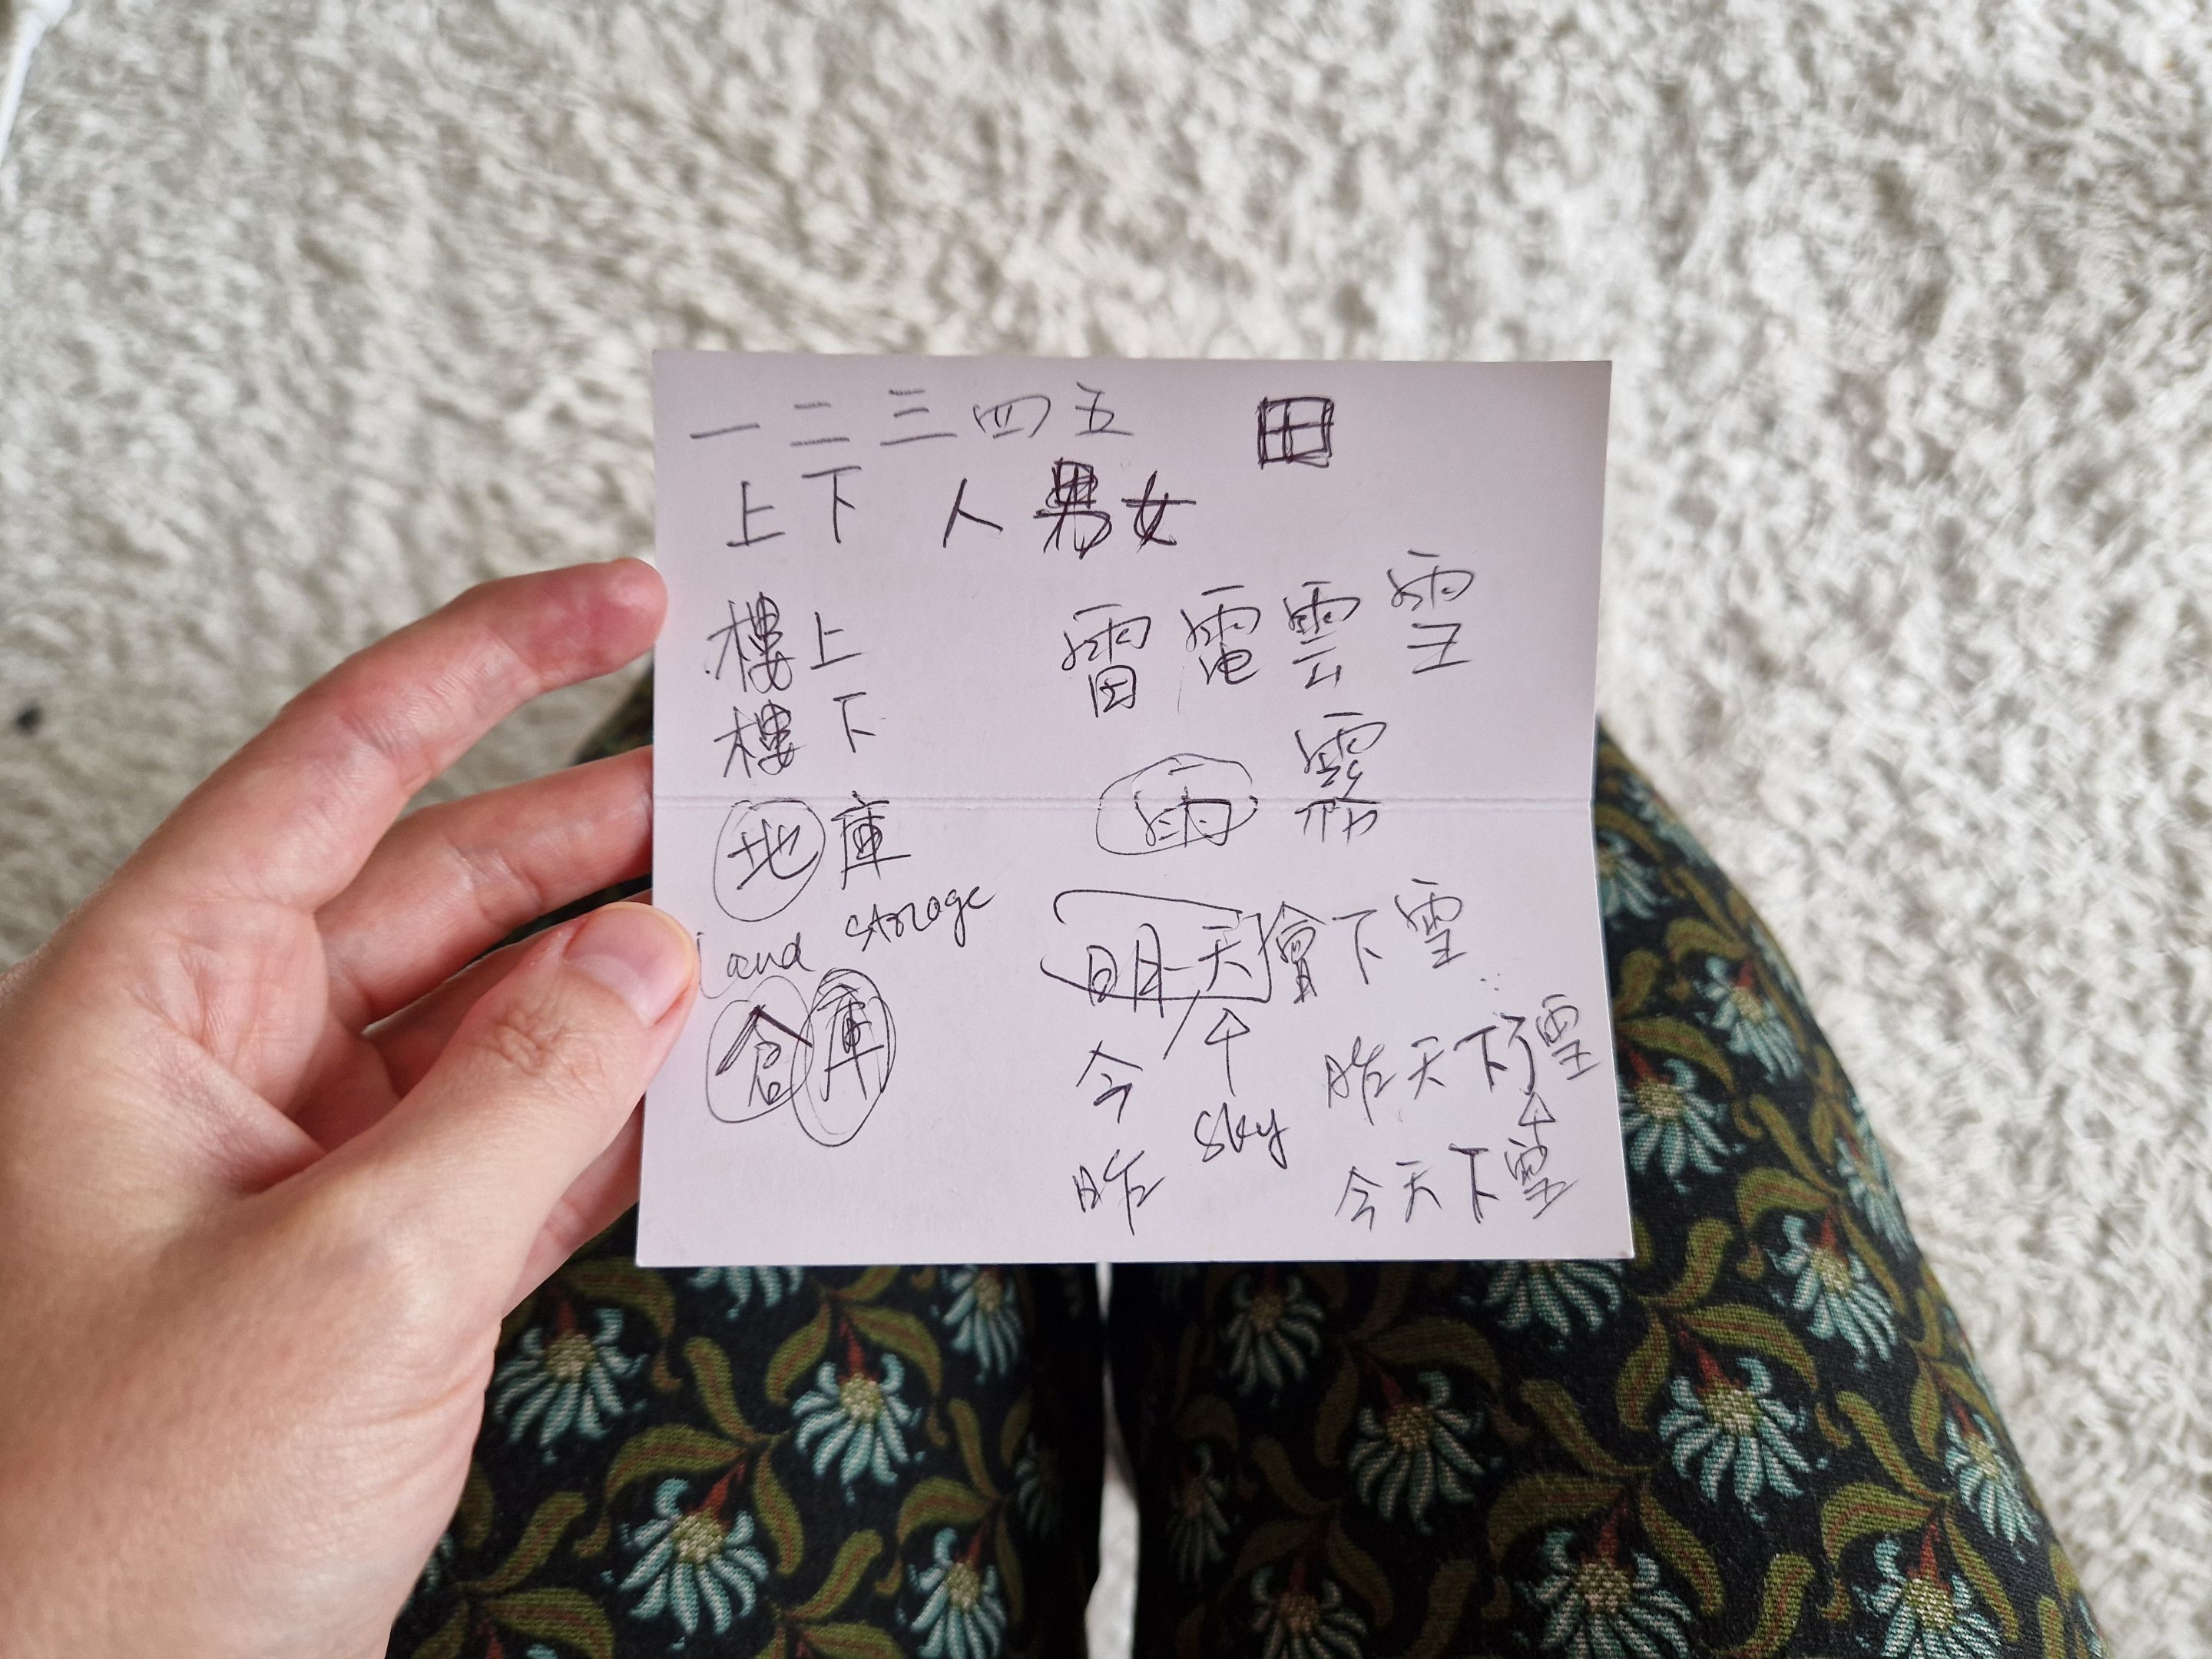 一二三四五 田
上下 人 男女
樓上
樓下
雷 電 雲 雪
雨 霧
地庫
land storage
倉庫
明天會下雪
今
昨
sky
昨天下了雪
今天下雪